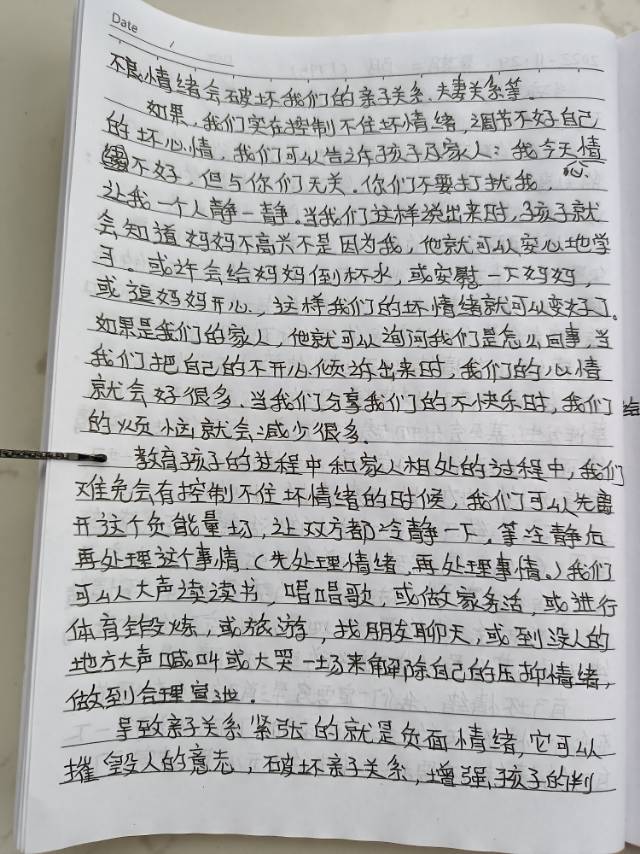 Date /
不良情绪会破坏我们的亲子关系、夫妻关系等。
如果,我们实在控制不住坏情绪,调节不好自己
的坏心情,我们可以告诉孩子及家人:我今天情
绪不好,但与你们无关,你们不要打扰我,
让我一个人静一静。当我们这样说出来时,孩子就
会知道妈妈不高兴不是因为我,他就可以安心地学
习。或许会给妈妈倒杯水,或安慰一下妈妈,
或逗妈妈开心,这样我们的坏情绪就可以变好了。
如果是我们的家人,他就可以询问我们是怎么回事,当
我们把自己的不开心倾诉出来时,我们的心情
就会好很多,当我们分享我们的不快乐时,我们
的烦恼就会减少很多.
教育孩子的过程中和家人相处的过程中,我们
难免会有控制不住坏情绪的时候,我们可以先离
开这个负能量场,让双方都冷静一下,等冷静后
再处理这个事情.(先处理情绪,再处理事情。)我们
可以大声读读书,唱唱歌,或做家务活,或进行
体育锻炼,或旅游,找朋友聊天,或到没人的
地方大声喊叫或大哭一场来解除自己的压抑情绪,
做到合理宣泄.
导致亲子关系紧张的就是负面情绪,它可以
摧毁人的意志,破坏亲子关系,增强孩子的判